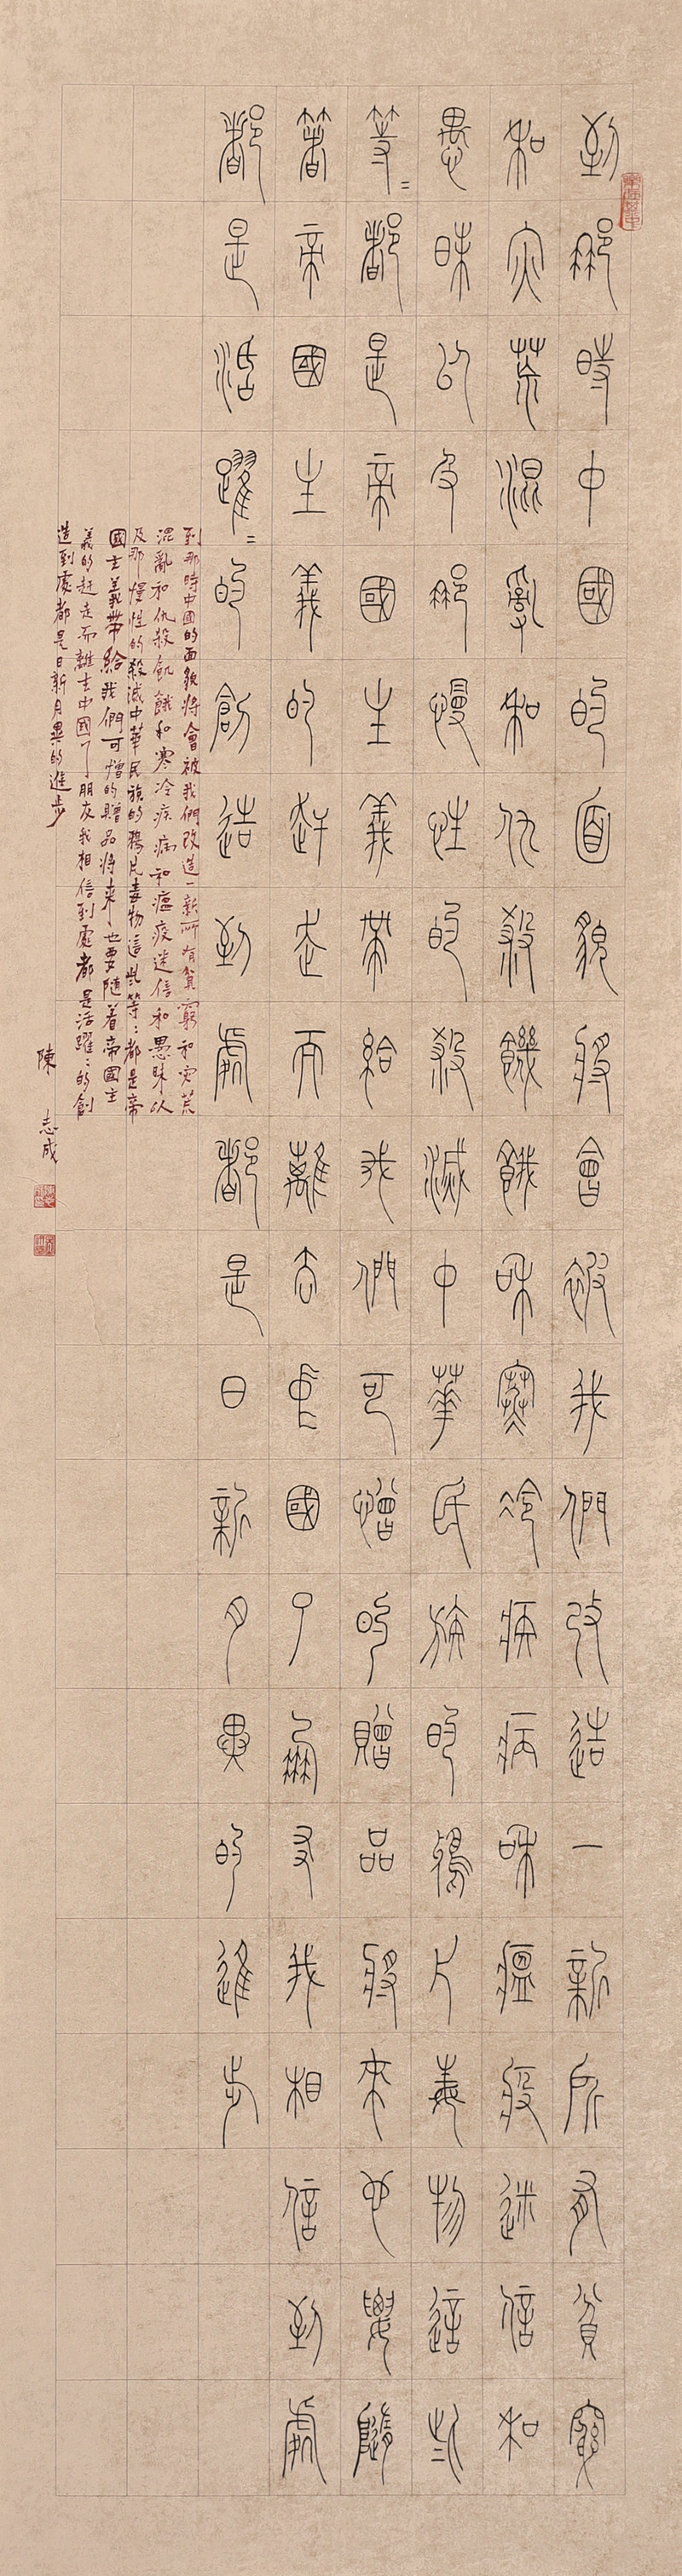 到那時中國的面貌將會被我們改造一新所有貧窮
和灾荒混亂和仇殺饑餓和寒冷疾病和瘟疫迷信和
愚昧以及那慢性的殺滅中華民族的鴉片毒物這些
等=都是帝國主義帶給我們可憎的贈品將來也要隨
著帝國主義的赶走而離去中國了朋友我相信到處
都是活躍=的創造到處都是日新月異的進步
到那時中國的面貌將會被我們改造一新所有貧窮和灾荒
混亂和仇殺飢餓和寒冷疾病和瘟疫迷信和愚昧以
及那慢性的殺滅中華民族的鴉片毒物這些等:都是帝
國主義帶給我們可憎的贈品將來也要隨着帝國主
義的赶走而離去中國了朋友我相信到處都是活躍:的創
造到處都是日新月異的進步
陳志成